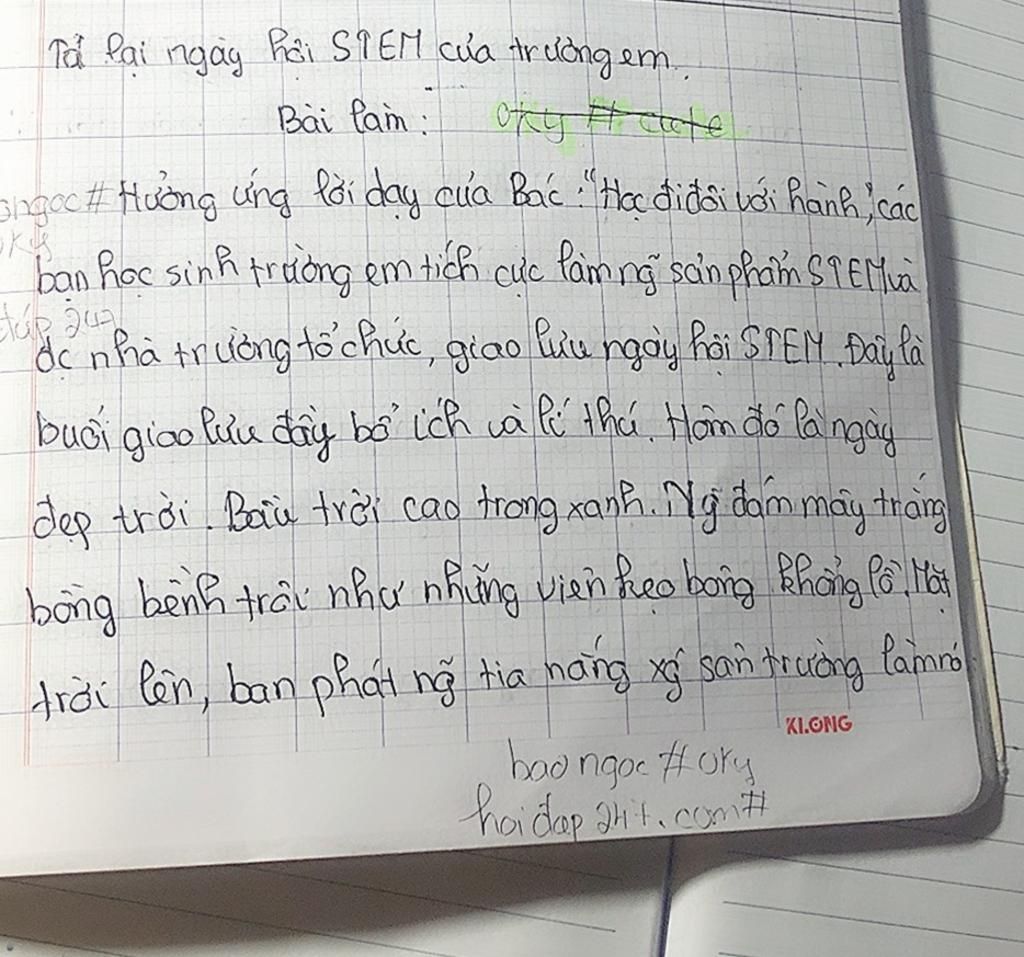 Tả lại ngày hội STEM của trường em.
Bài làm: oky # cute
ongoc# Hưởng ứng lời dạy của Bác: "Học đi đôi với hành", các
oky
bạn học sinh trường em tích cực làm ng~ sản phẩm STEM và
đáp 247
đc nhà trường tổ chức, giao lưu ngày hội STEM. Đây là
buổi giao lưu đầy bổ ích và lí thú. Hôm đó là ngày
đẹp trời. Bầu trời cao trong xanh. Ng~ đám mây trắng
bồng bềnh trôi như những viên kẹo bông khổng lồ. Mặt
trời lên, ban phát ng~ tia nắng xg~ sân trường làm nó
KLONG
bao ngoc # oky
hoidap247.com#